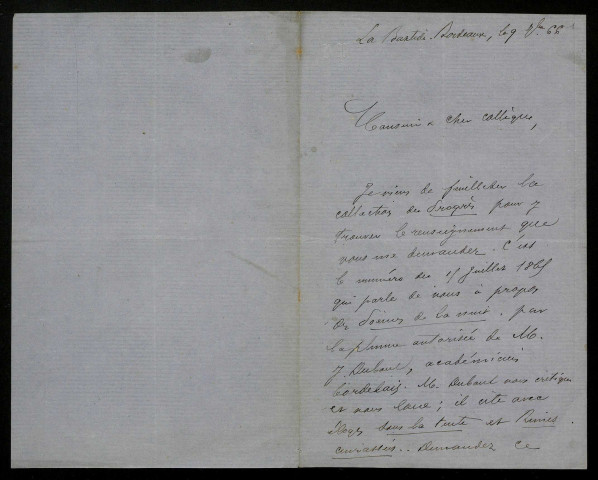 La Bastide-Bordeaux, le 9 Xbre 66
Monsieur & cher collègue,
Je viens de feuilleter la
collection du Progrès pour y
trouver le renseignement que
vous me demandez. C'est
le numéro du 15 juillet 1865
qui parle de vous à propos
de Poèmes de la nuit, par
la plume autorisée de M.
J. Duboul, académicien
bordelais. M. Duboul vous critique
et vous loue ; il cite avec
éloges sous la tente et Rimes
cuirassées. Demandez ce